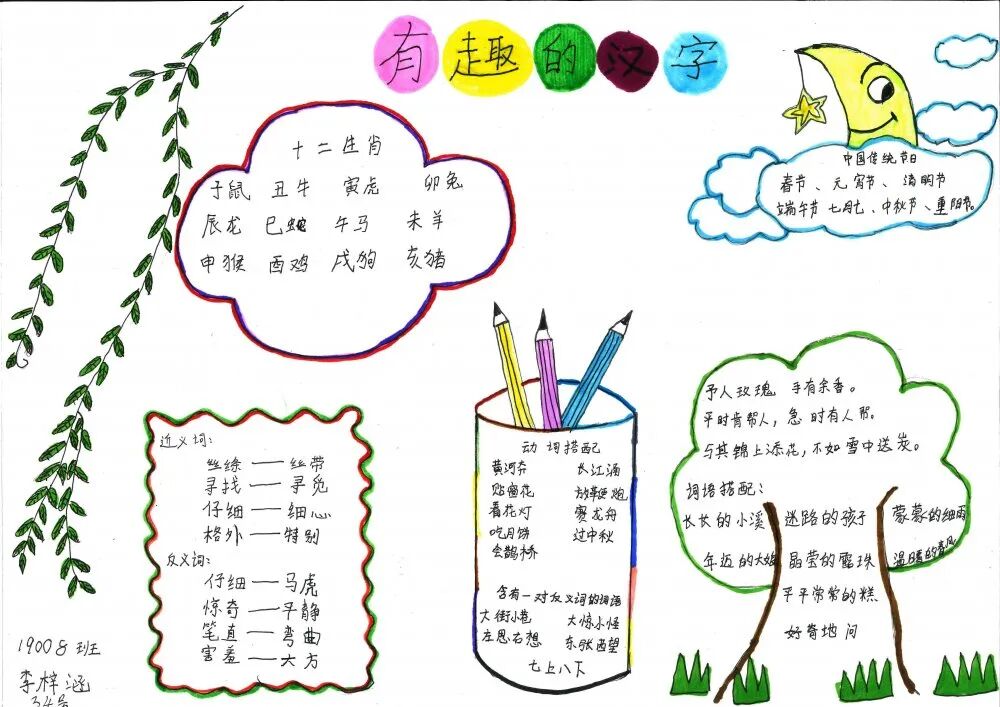 有趣的汉字
十二生肖
子鼠 丑牛 寅虎 卯兔
辰龙 巳蛇 午马 未羊
申猴 酉鸡 戌狗 亥猪
中国传统节日
春节、元宵节、清明节
端午节 七月七、中秋节、重阳节。
近义词:
丝绦——丝带
寻找——寻觅
仔细——细心
格外——特别
反义词:
仔细——马虎
惊奇——平静
笔直——弯曲
害羞——大方
动词搭配
黄河奔 长江涌
贴窗花 放鞭炮
看花灯 赛龙舟
吃月饼 过中秋
会鹊桥
含有一对反义词的词语
大街小巷 大惊小怪
左思右想 东张西望
七上八下
予人玫瑰 手有余香。
平时肯帮人,急时有人帮。
与其锦上添花,不如雪中送炭。
词语搭配:
长长的小溪 迷路的孩子 蒙蒙的细雨
年迈的大娘 晶莹的露珠 温暖的春风
平平常常的糕
好奇地问
19008班
李梓涵
34号